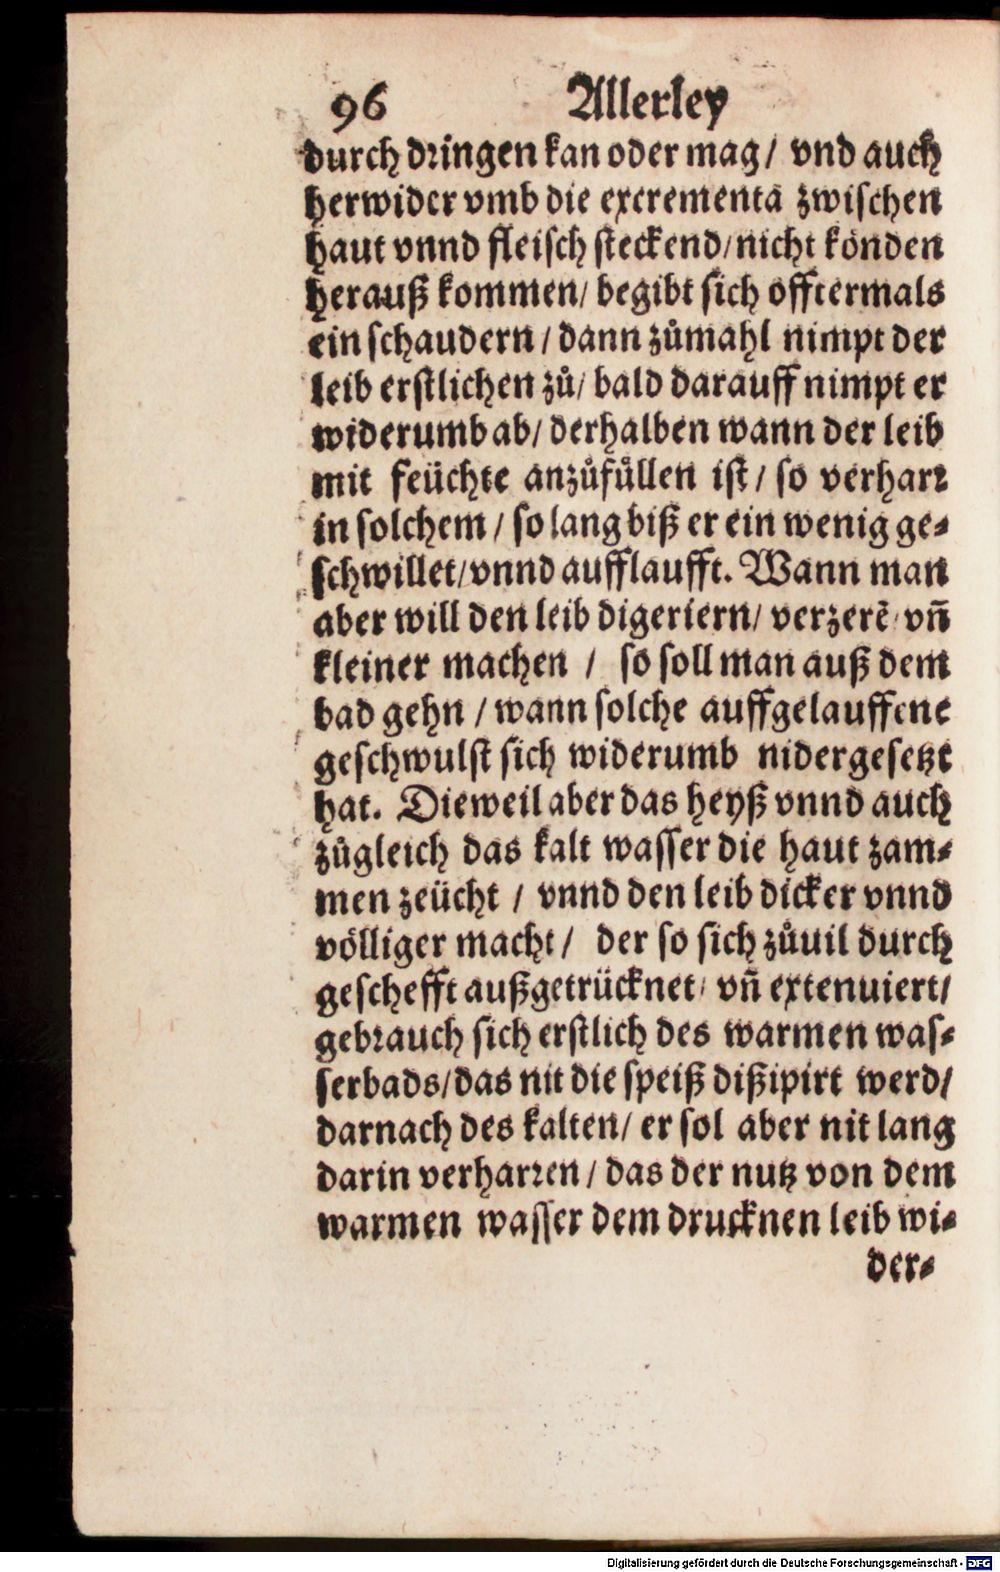 96 Allerley
durch dringen kan oder mag / vnd auch
herwider vmb die excrementa zwischen
haut vnnd fleisch steckend / nicht könden
herauß kommen / begibt sich offtermals
ein schaudern / dann zůmahl nimpt der
leib erstlichen zů / bald darauff nimpt er
widerumb ab / derhalben wann der leib
mit feüchte anzůfüllen ist / so verharr
in solchem / so lang biß er ein wenig ge-
schwillet / vnnd aufflaufft. Wann man
aber will den leib digeriern / verzerē / vñ
kleiner machen / so soll man auß dem
bad gehn / wann solche auffgelauffene
geschwulst sich widerumb nidergesetzt
hat. Dieweil aber das heyß vnnd auch
zůgleich das kalt wasser die haut zam-
men zeücht / vnnd den leib dicker vnnd
völliger macht / der so sich zůuil durch
geschefft außgetrücknet / vñ extenuiert /
gebrauch sich erstlich des warmen was-
serbads / das nit die speiß dißipirt werd /
darnach des kalten / er sol aber nit lang
darin verharren / das der nutz von dem
warmen wasser dem drucknen leib wi-
der-
Digitalisierung gefördert durch die Deutsche Forschungsgemeinschaft - DFG